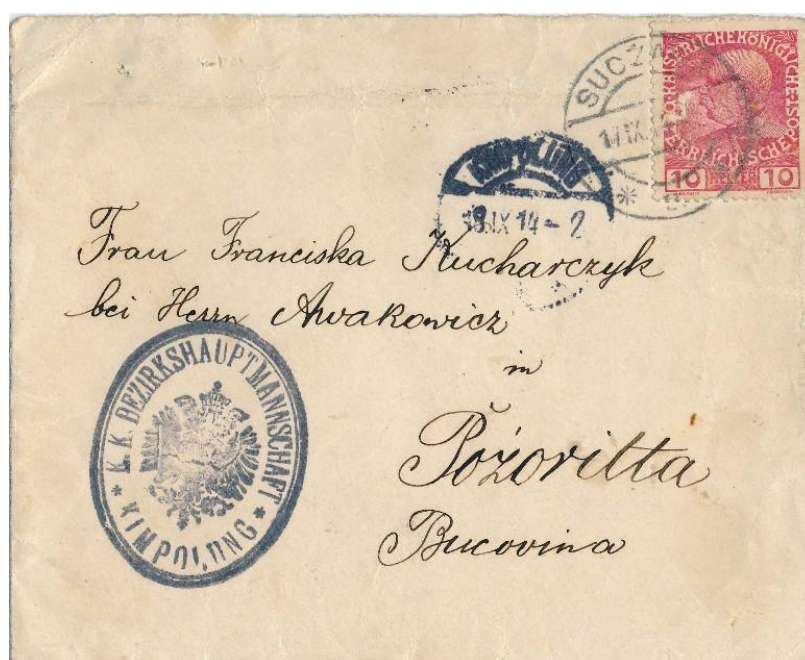 SUCZAWA
17 IX
KAISERLICHE KÖNIGLICHE ÖSTERREICHISCHE POST
10 HELLER 10
KIMPOLUNG
18.IX 14-2
Frau Franciska Kucharczyk
bei Herrn Awakowicz
in
Pożoritta
Bucovina
K.K. BEZIRKSHAUPTMANNSCHAFT
* KIMPOLUNG *